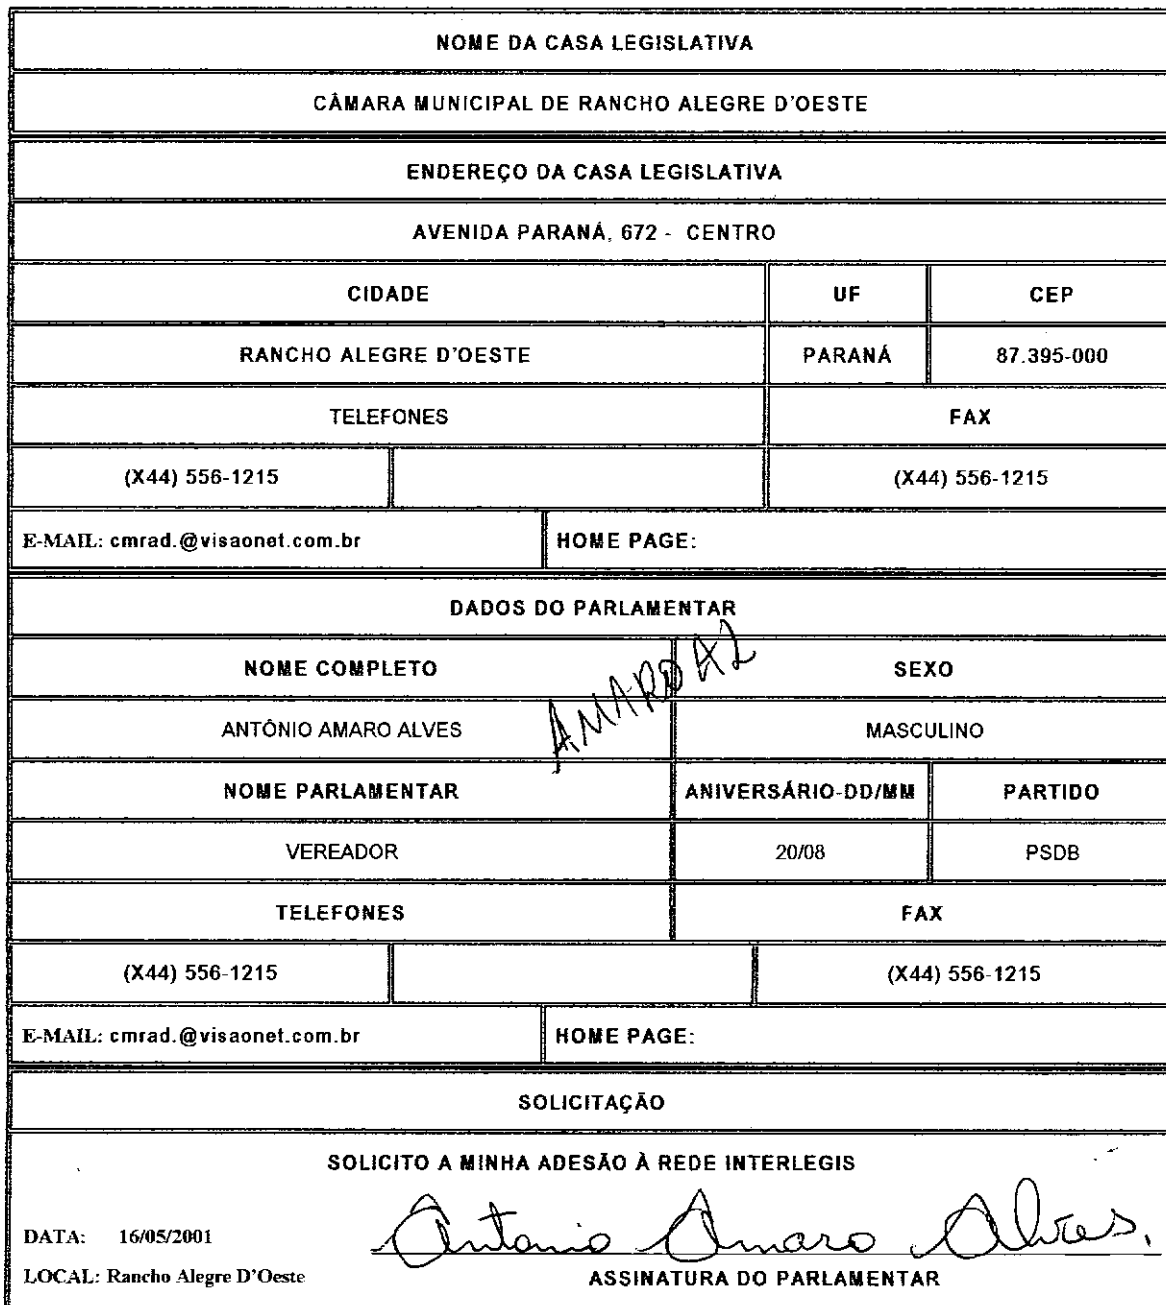 NOME DA CASA LEGISLATIVA
CÂMARA MUNICIPAL DE RANCHO ALEGRE D'OESTE
ENDEREÇO DA CASA LEGISLATIVA
AVENIDA PARANÁ, 672 - CENTRO
CIDADE UF CEP
RANCHO ALEGRE D'OESTE PARANÁ 87.395-000
TELEFONES FAX
(X44) 556-1215 (X44) 556-1215
E-MAIL: cmrad.@visaonet.com.br HOME PAGE:
DADOS DO PARLAMENTAR
NOME COMPLETO SEXO
AMARO
ANTÔNIO AMARO ALVES MASCULINO
NOME PARLAMENTAR ANIVERSÁRIO-DD/MM PARTIDO
VEREADOR 20/08 PSDB
TELEFONES FAX
(X44) 556-1215 (X44) 556-1215
E-MAIL: cmrad.@visaonet.com.br HOME PAGE:
SOLICITAÇÃO
SOLICITO A MINHA ADESÃO À REDE INTERLEGIS
Antonio Amaro Alves.
DATA: 16/05/2001
LOCAL: Rancho Alegre D'Oeste ASSINATURA DO PARLAMENTAR